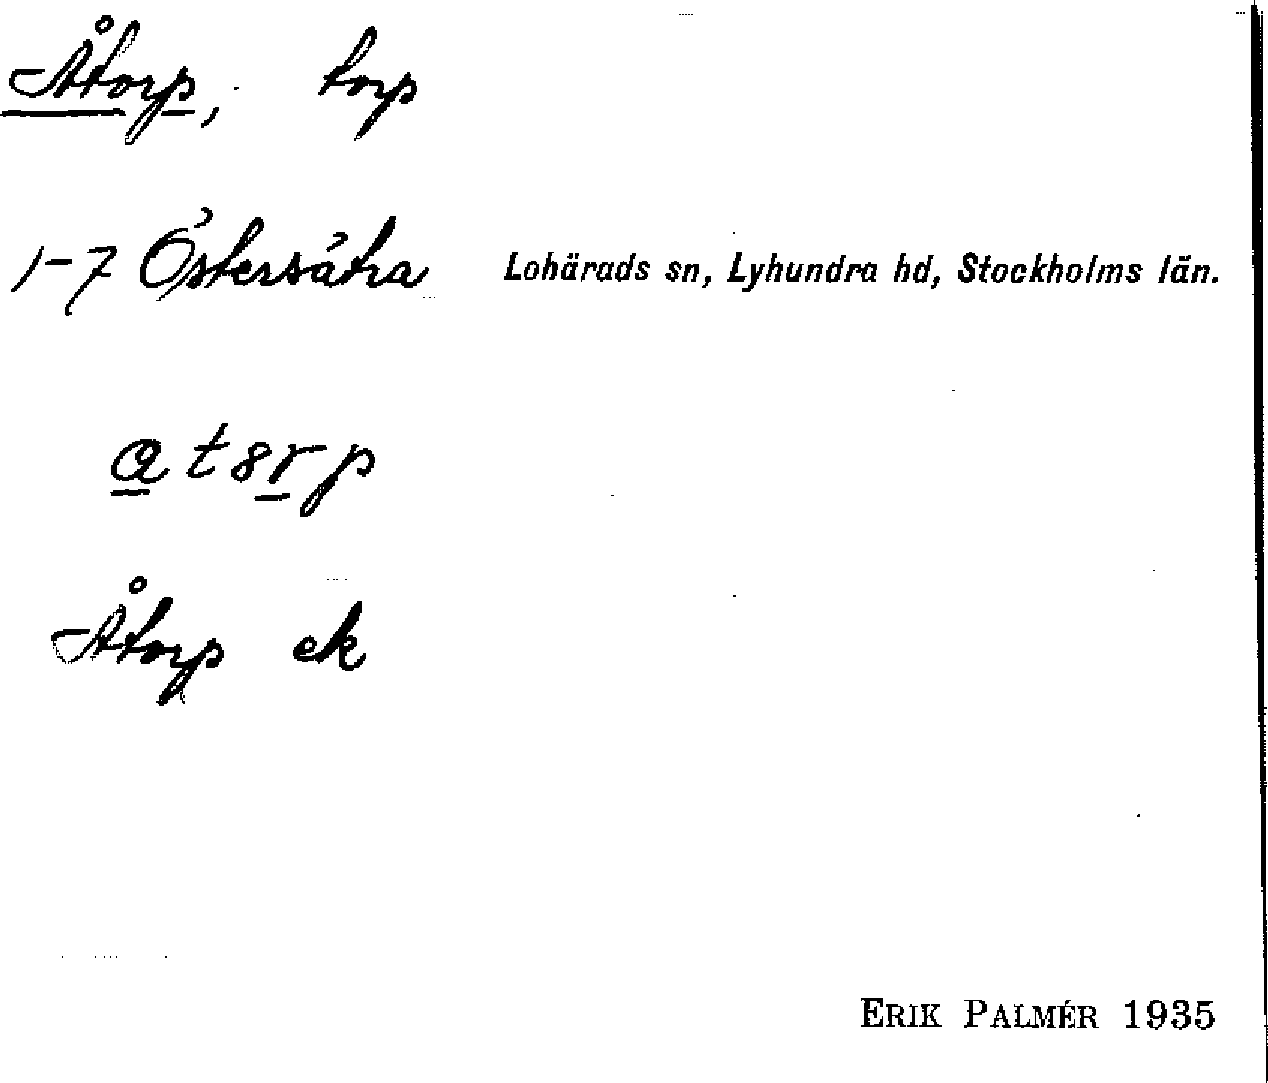 Åtorp, torp
1-7 Östersätra Lohärads sn, Lyhundra hd, Stockholms län.
a t 8 r p
Åtorp ek
ERIK PALMÉR 1935